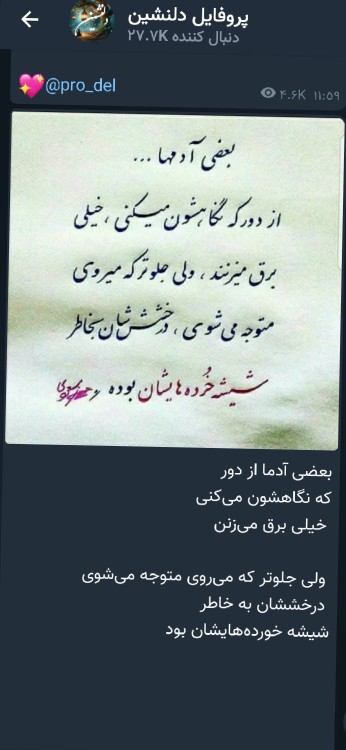 پروفایل دلنشین
دنبال کننده ۲۷.۷K
@pro_del
۴.۶K ۱۱:۵۹
بعضی آدمها ...
از دور که نگاهشون میکنی ، خیلی
برق میزنند ، ولی جلوتر که میروی
متوجه می شوی ، درخشش شان بخاطر
شیشه خُرده هایشان بوده
بعضی آدما از دور
که نگاهشون می‌کنی
خیلی برق می‌زنن
ولی جلوتر که می‌روی متوجه می‌شوی
درخششان به خاطر
شیشه خورده‌هایشان بود